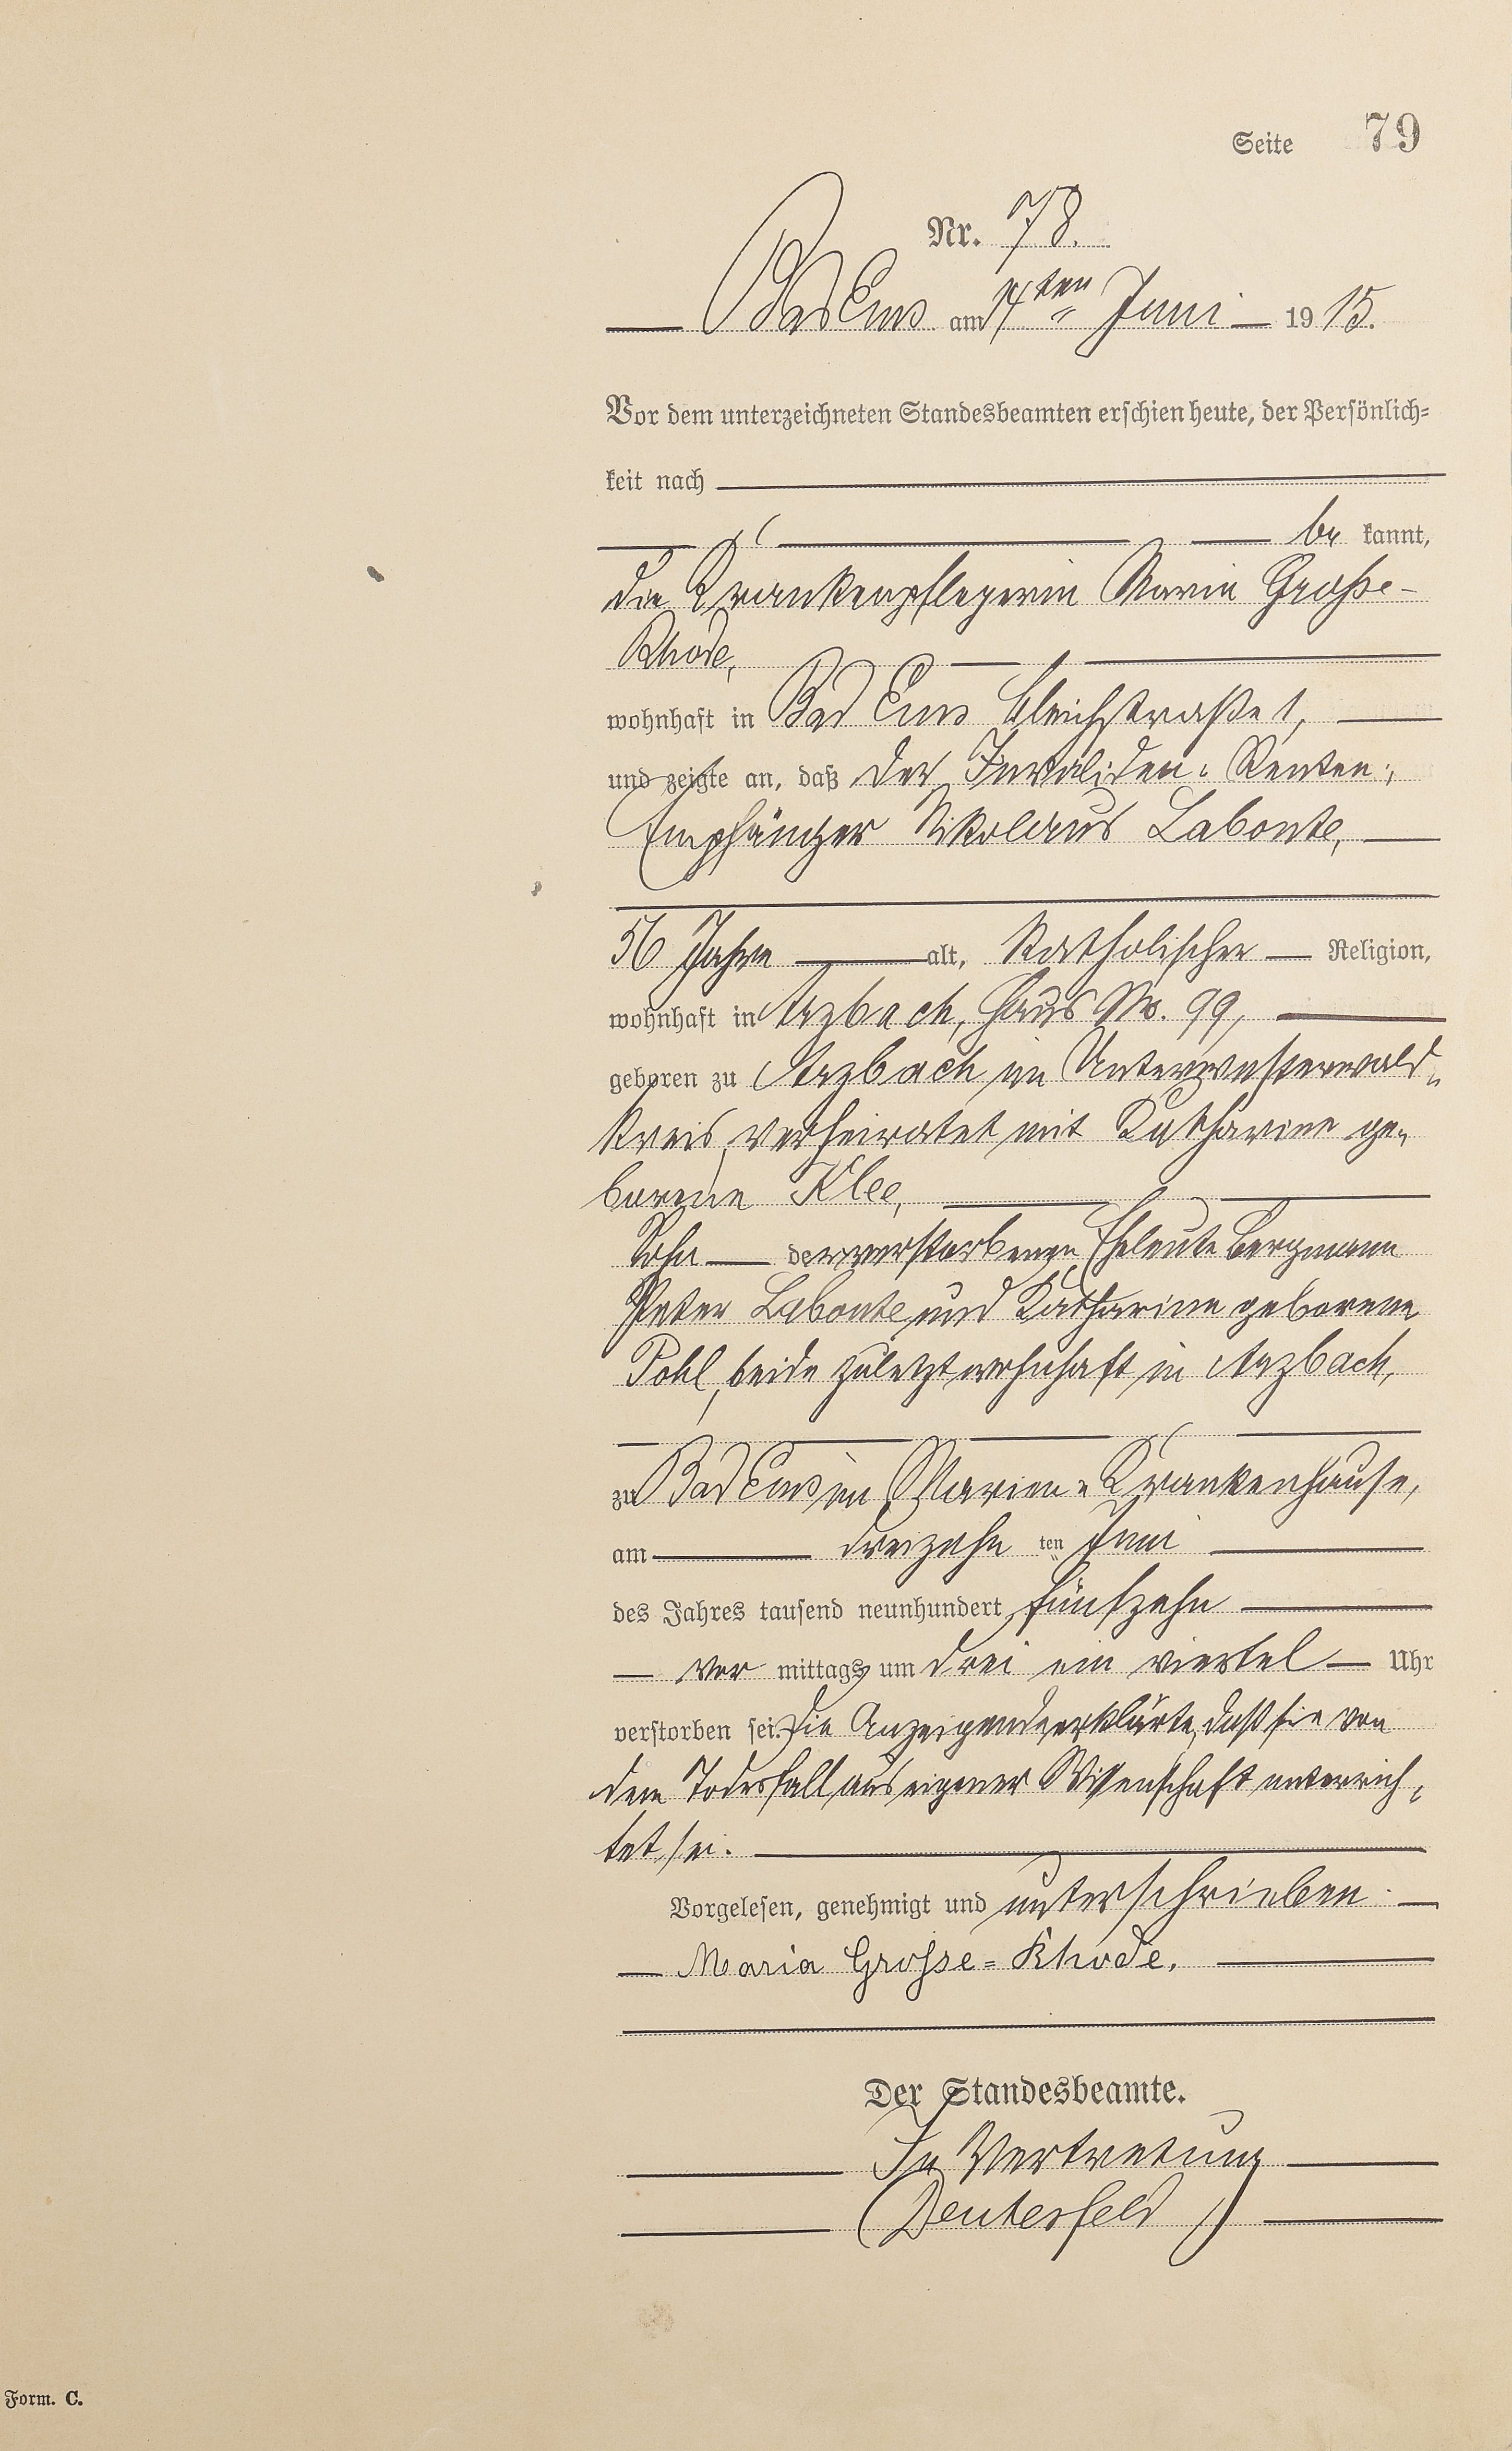 Seite 79
Nr. 78.
Bad Ems am 14ten Juni 1915.
Vor dem unterzeichneten Standesbeamten erschien heute, der Persönlich-
keit nach
be kannt,
die Krankenpflegerin Maria Große-
Rhode,
wohnhaft in Bad Ems Bleichstraße 1,
und zeigte an, daß der Invaliden-Renten-
Empfänger Nikolaus Labonte,
56 Jahre alt, katholischer Religion,
wohnhaft in Arzbach, Haus No. 99,
geboren zu Arzbach im Unterwesterwald-
kreis, verheiratet mit Katharine ge-
borene Klee,
Sohn der verstorbenen Eheleute Bergmann
Peter Labonte und Katharina geborene
Pohl, beide zuletzt wohnhaft in Arzbach,
zu Bad Ems im Marien-Krankenhause,
am dreizehn ten Juni
des Jahres tausend neunhundert fünfzehn
vor mittags um drei ein viertel Uhr
verstorben sei. Die Anzeigende erklärte, daß sie von
dem Todesfall aus eigener Wissenschaft unterrich-
tet sei.
Vorgelesen, genehmigt und unterschrieben.
Maria Grosse-Rhode.
Der Standesbeamte.
In Vertretung
(Deutesfeld)
Form. C.